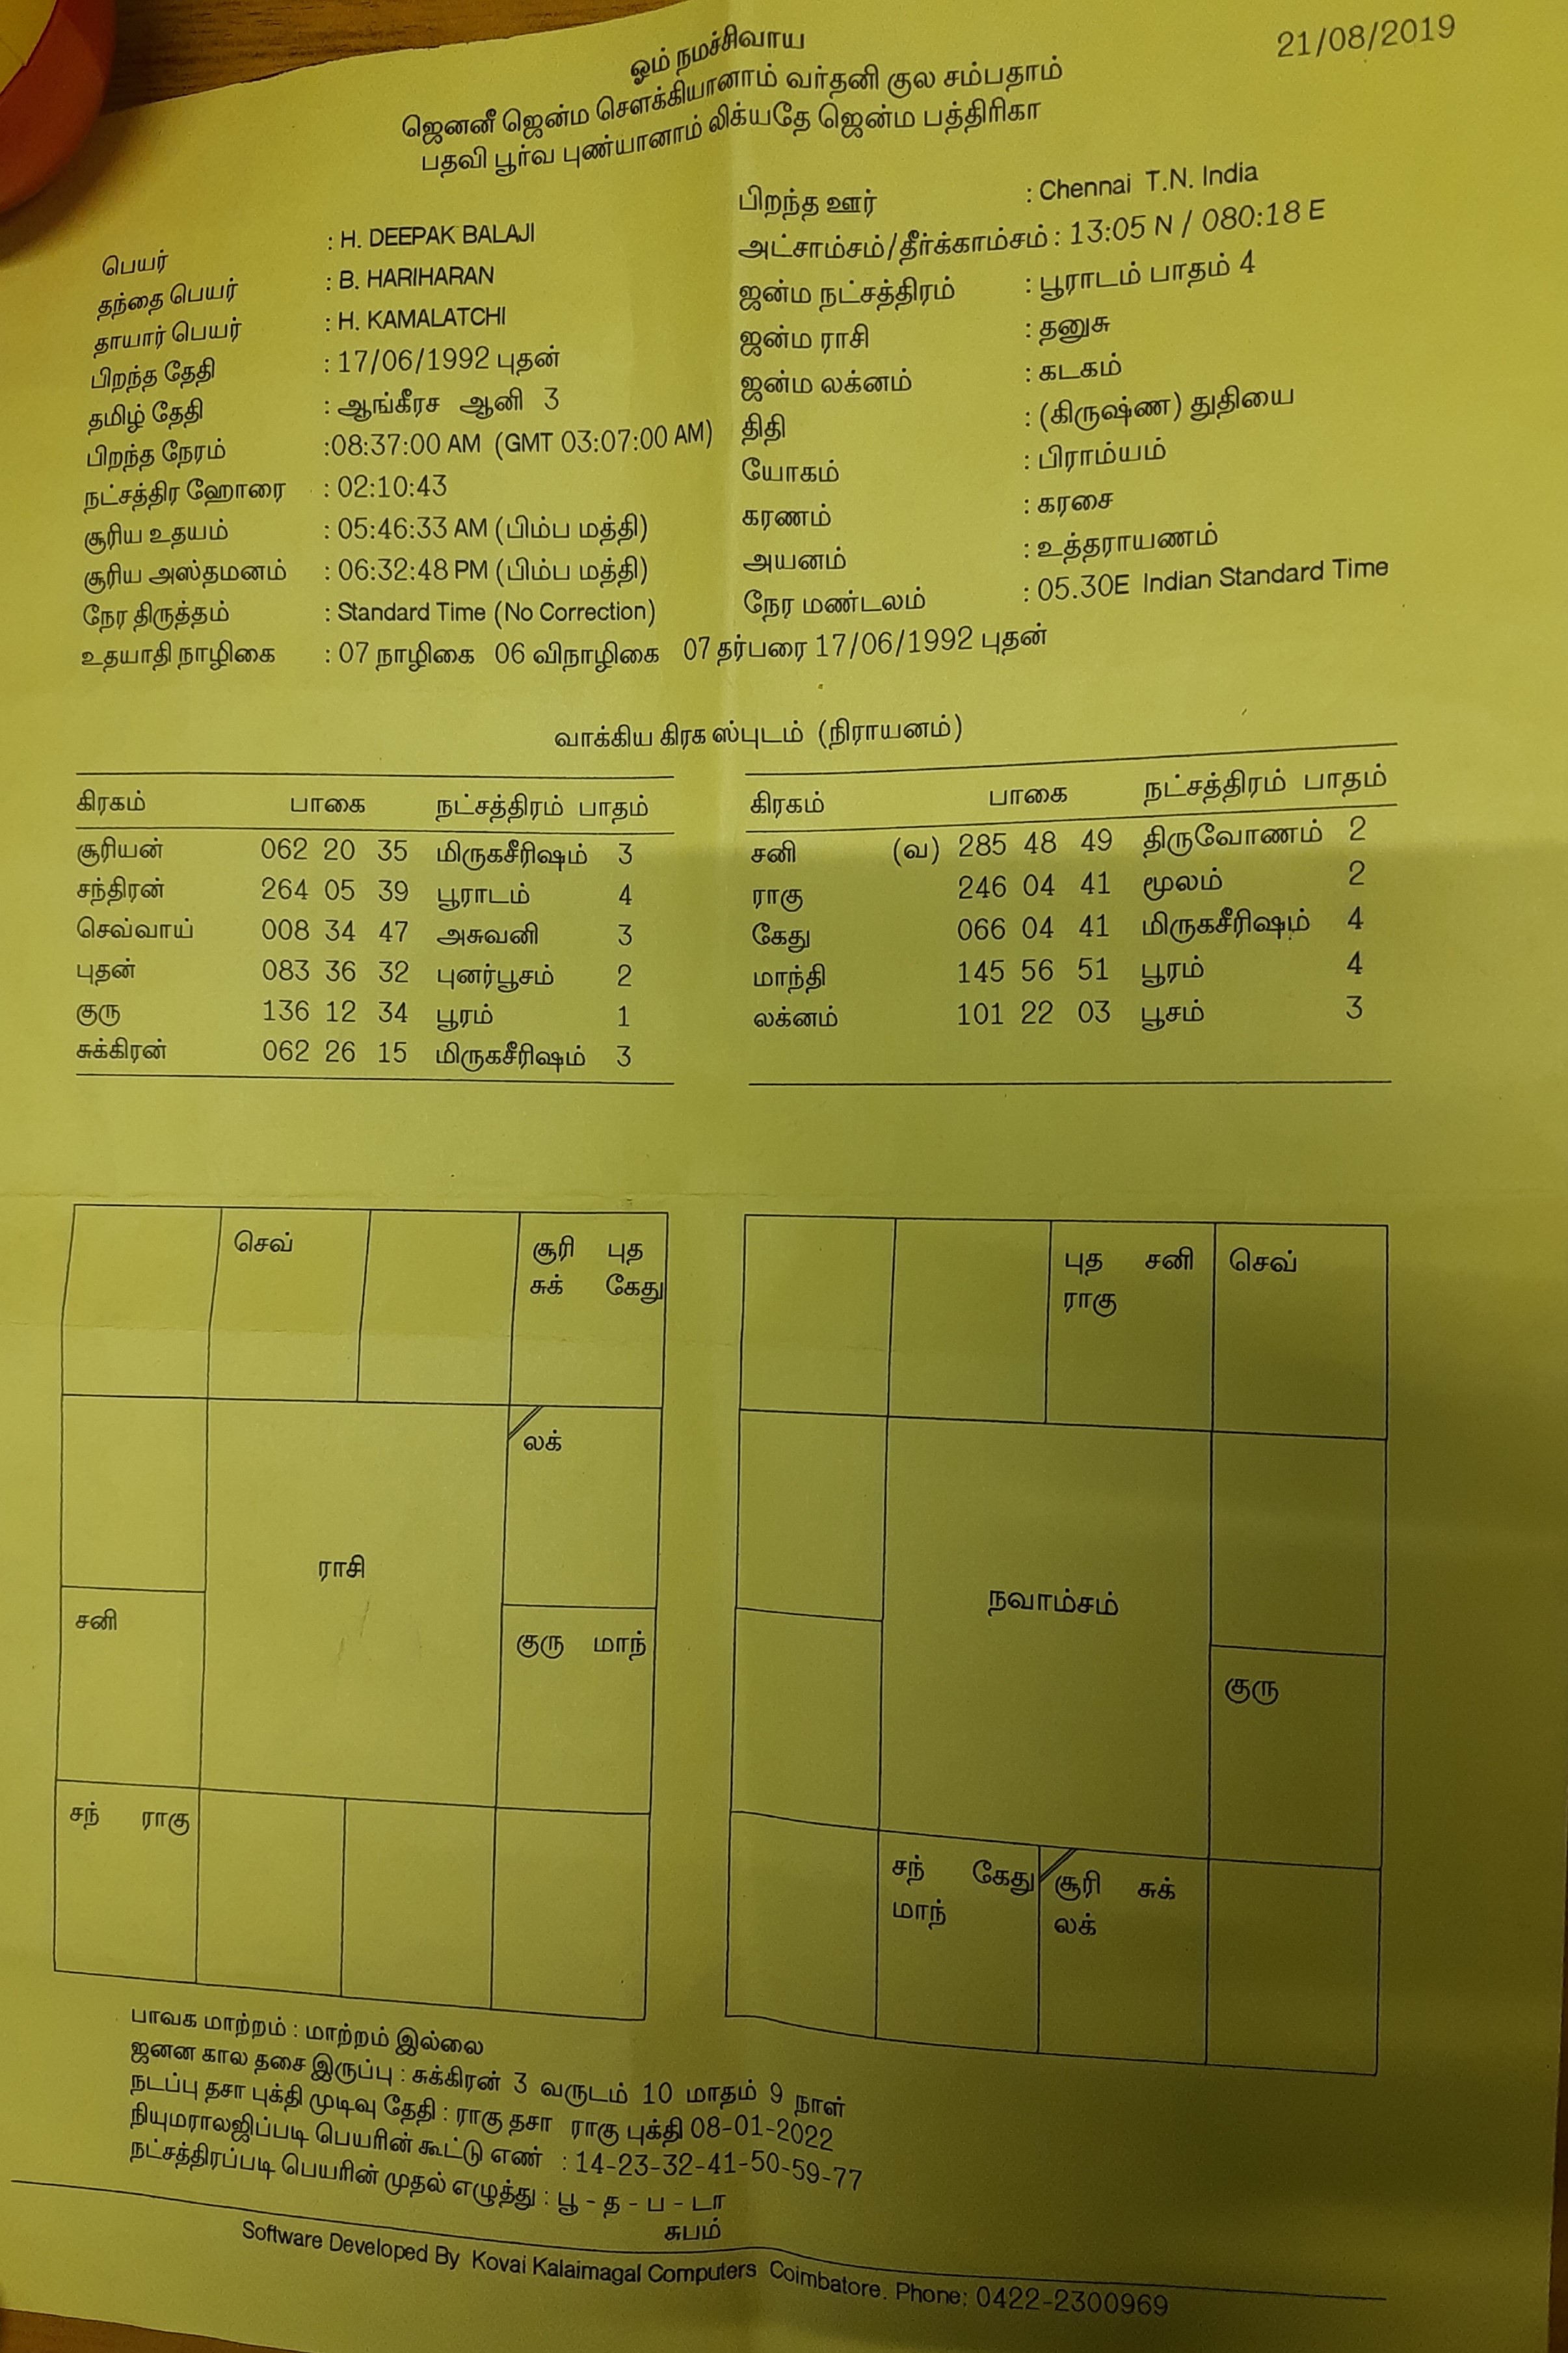 21/08/2019
ஓம் நமச்சிவாய
ஜெனனீ ஜென்ம சௌக்கியானாம் வர்தனி குல சம்பதாம்
பதவி பூர்வ புண்யானாம் லிக்யதே ஜென்ம பத்திரிகா
பெயர் : H. DEEPAK BALAJI
தந்தை பெயர் : B. HARIHARAN
தாயார் பெயர் : H. KAMALATCHI
பிறந்த தேதி : 17/06/1992 புதன்
தமிழ் தேதி : ஆங்கீரச ஆனி 3
பிறந்த நேரம் :08:37:00 AM (GMT 03:07:00 AM)
நட்சத்திர ஹோரை : 02:10:43
சூரிய உதயம் : 05:46:33 AM (பிம்ப மத்தி)
சூரிய அஸ்தமனம் : 06:32:48 PM (பிம்ப மத்தி)
நேர திருத்தம் : Standard Time (No Correction)
உதயாதி நாழிகை : 07 நாழிகை 06 விநாழிகை 07 தர்பரை 17/06/1992 புதன்
பிறந்த ஊர் : Chennai T.N. India
அட்சாம்சம்/தீர்க்காம்சம் : 13:05 N / 080:18 E
ஜன்ம நட்சத்திரம் : பூராடம் பாதம் 4
ஜன்ம ராசி : தனுசு
ஜன்ம லக்னம் : கடகம்
திதி : (கிருஷ்ண) துதியை
யோகம் : பிராம்யம்
கரணம் : கரசை
அயனம் : உத்தராயணம்
நேர மண்டலம் : 05.30E Indian Standard Time
வாக்கிய கிரக ஸ்புடம் (நிராயனம்)
கிரகம் பாகை நட்சத்திரம் பாதம்
சூரியன் 062 20 35 மிருகசீரிஷம் 3
சந்திரன் 264 05 39 பூராடம் 4
செவ்வாய் 008 34 47 அசுவனி 3
புதன் 083 36 32 புனர்பூசம் 2
குரு 136 12 34 பூரம் 1
சுக்கிரன் 062 26 15 மிருகசீரிஷம் 3
கிரகம் பாகை நட்சத்திரம் பாதம்
சனி (வ) 285 48 49 திருவோணம் 2
ராகு 246 04 41 மூலம் 2
கேது 066 04 41 மிருகசீரிஷம் 4
மாந்தி 145 56 51 பூரம் 4
லக்னம் 101 22 03 பூசம் 3
செவ்
சூரி புத
சுக் கேது
லக்
ராசி
சனி
குரு மாந்
சந் ராகு
புத சனி
ராகு
செவ்
நவாம்சம்
குரு
சந் கேது
மாந்
சூரி சுக்
லக்
பாவக மாற்றம் : மாற்றம் இல்லை
ஜனன கால தசை இருப்பு : சுக்கிரன் 3 வருடம் 10 மாதம் 9 நாள்
நடப்பு தசா புக்தி முடிவு தேதி : ராகு தசா ராகு புக்தி 08-01-2022
நியுமராலஜிப்படி பெயரின் கூட்டு எண் : 14-23-32-41-50-59-77
நட்சத்திரப்படி பெயரின் முதல் எழுத்து : பூ - த - ப - டா
சுபம்
Software Developed By Kovai Kalaimagal Computers Coimbatore. Phone: 0422-2300969